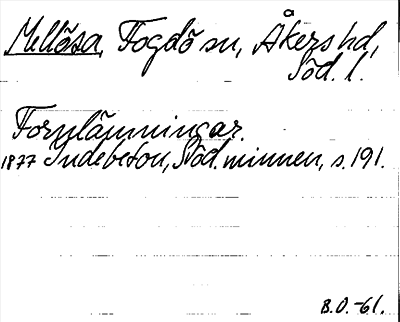 Mellösa, Fogdö sn, Åkers hd,
Söd. l.
Fornlämningar.
1877 Indebetou, Söd. minnen, s. 191.
B.O.-61.